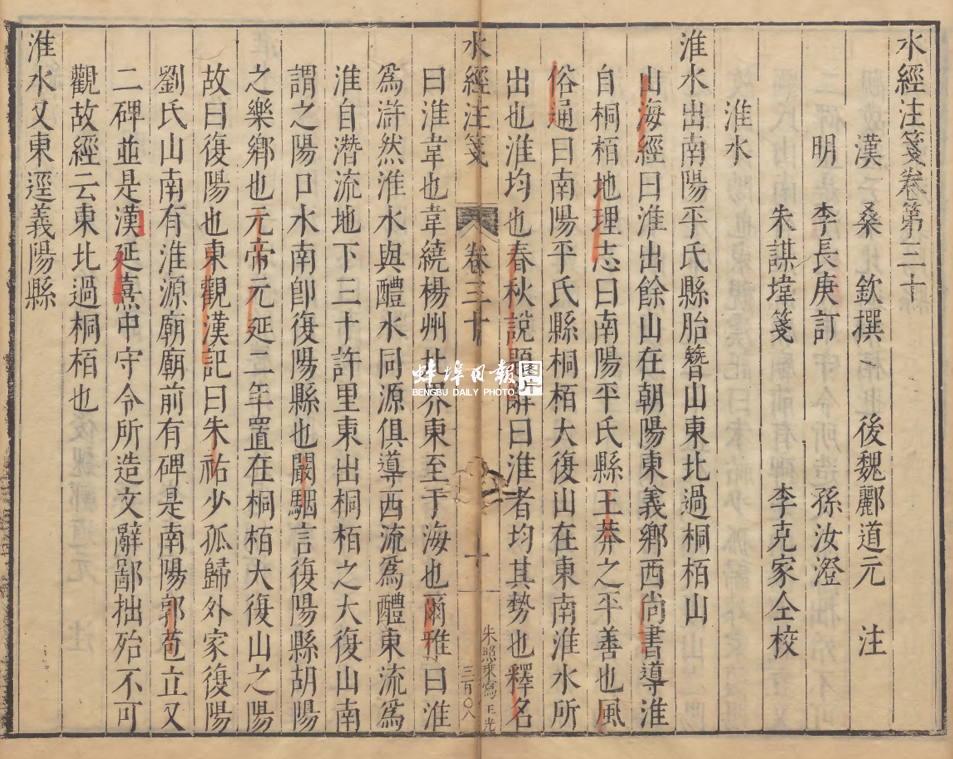 水經注箋卷第三十
漢 桑 欽撰 後魏酈道元 注
明 李長庚訂 孫汝澄
朱謀㙔箋 李克家仝校
淮水
淮水出南陽平氏縣胎簪山東北過桐栢山
山海經曰淮出餘山在朝陽東義鄉西尚書導淮
自桐栢地理志曰南陽平氏縣王莽之平善也風
俗通曰南陽平氏縣桐栢大復山在東南淮水所
出也淮均也春秋說題辭曰淮者均其勢也釋名
水經注箋 卷三十 十 朱照來寫 三百〇八
曰淮韋也韋繞楊州北界東至于海也爾雅曰淮
爲滸然淮水與醴水同源俱導西流爲醴東流爲
淮自潛流地下三十許里東出桐栢之大復山南
謂之陽口水南卽復陽縣也闞駰言復陽縣胡陽
之樂鄉也元帝元延二年置在桐栢大復山之陽
故曰復陽也東觀漢記曰朱祐少孤歸外家復陽
劉氏山南有淮源廟廟前有碑是南陽郭苞立又
二碑並是漢延熹中守令所造文辭鄙拙殆不可
觀故經云東北過桐栢也
淮水又東逕義陽縣
蚌埠日報 圖片
BENGBU DAILY PHOTO